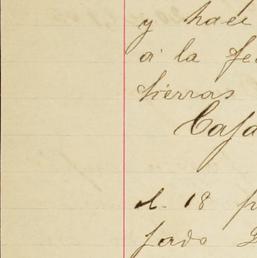 y hace
á la fe
tierras
Casa
el 18 p
jado